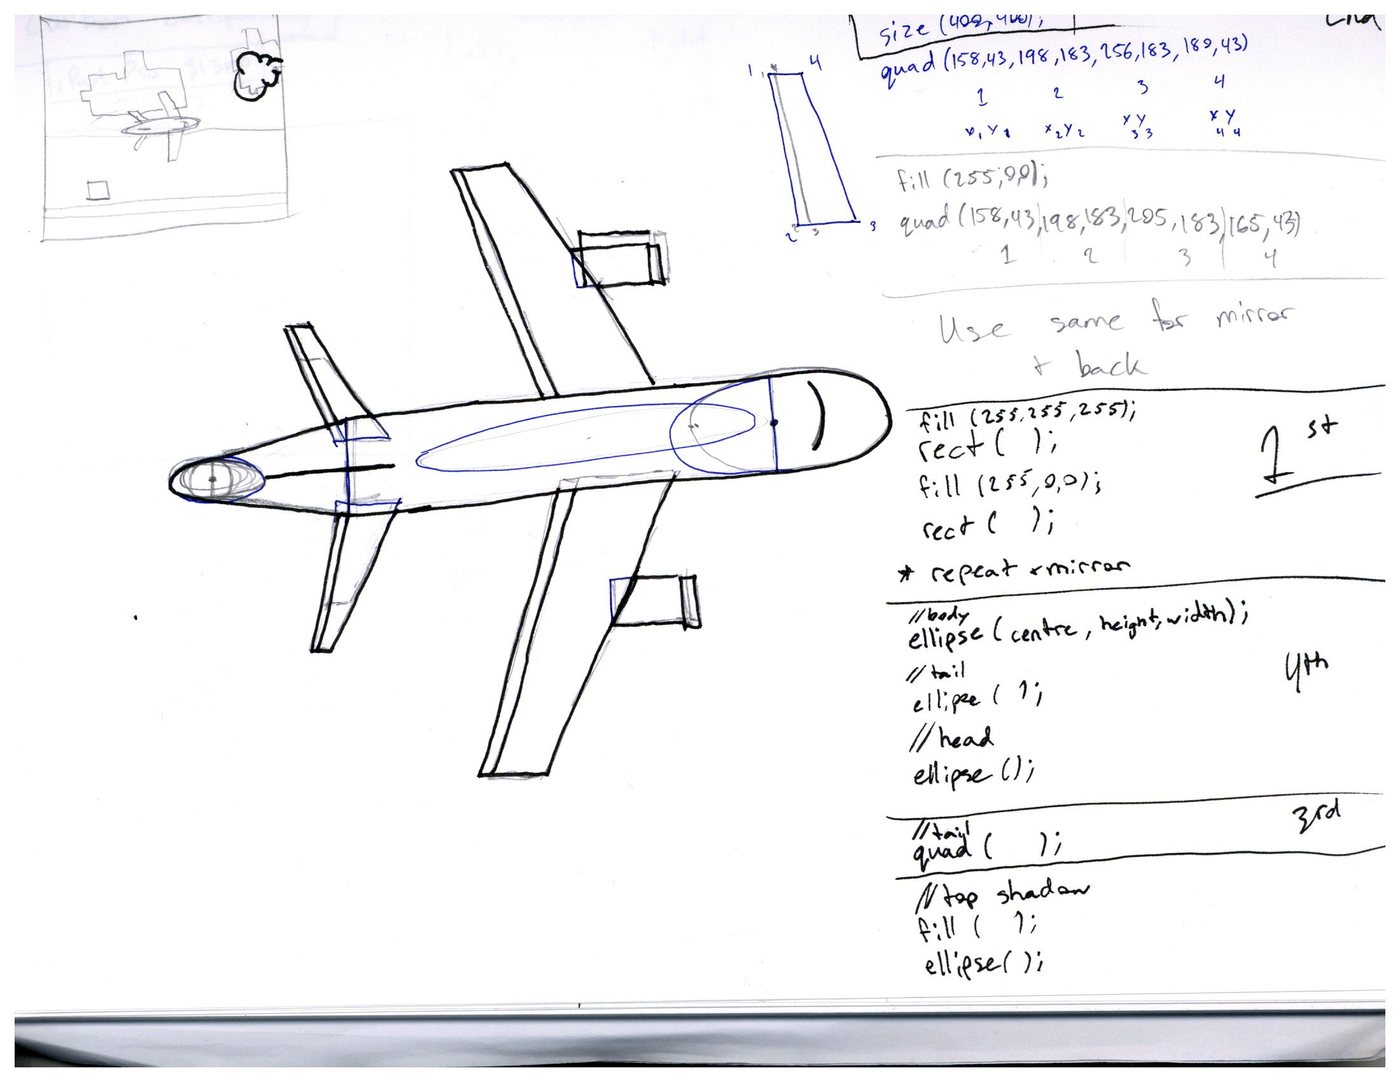 size (400,400);
quad (158,43,198,183,256,183,189,43)
1 2 3 4
x1 y1 x2 y2 x3 y3 x4 y4
1 4
2 3 3
fill (255,0,0);
quad (158,43,198,183,205,183,165,43)
1 2 3 4
Use same for mirror
+ back
fill (255,255,255);
rect ( );
1st
fill (255,0,0);
rect ( );
* repeat + mirror
//body
ellipse (centre, height, width);
//tail
ellipse ( );
4th
//head
ellipse ();
//tail
quad ( );
3rd
//top shadow
fill ( );
ellipse( );